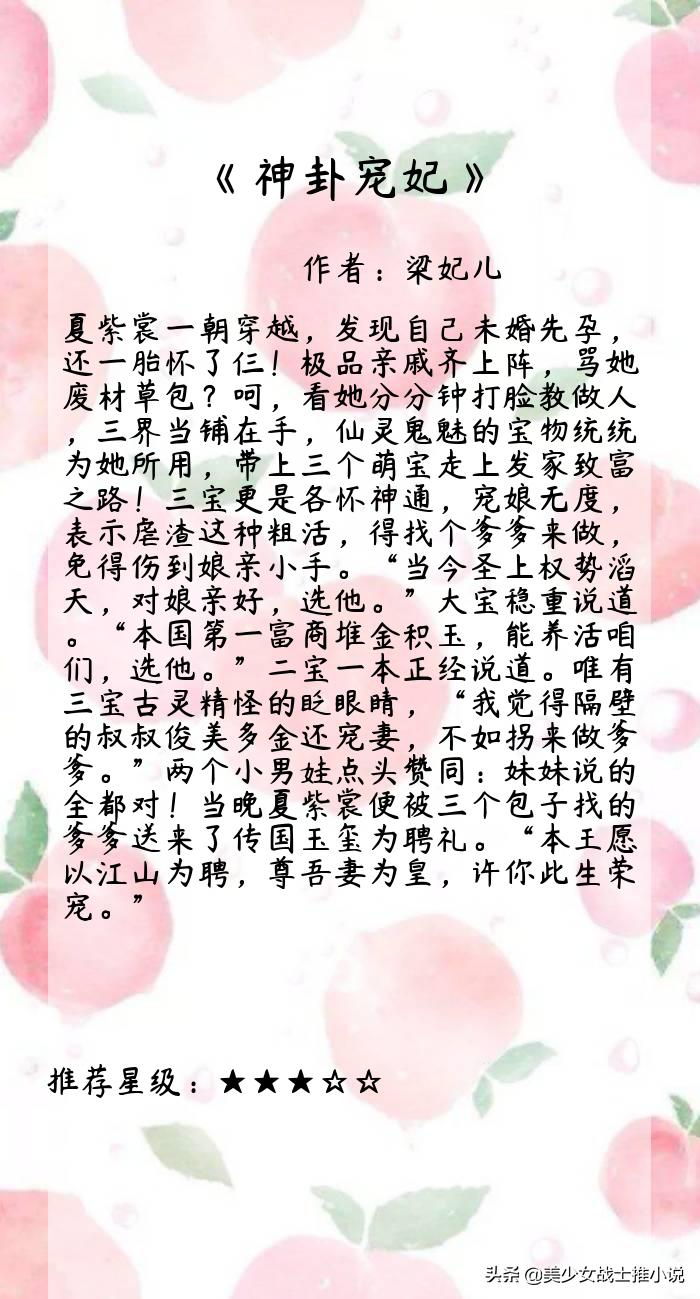 《神卦宠妃》
作者：梁妃儿
夏紫裳一朝穿越，发现自己未婚先孕，
还一胎怀了仨！极品亲戚齐上阵，骂她
废材草包？呵，看她分分钟打脸教做人
，三界当铺在手，仙灵鬼魅的宝物统统
为她所用，带上三个萌宝走上发家致富
之路！三宝更是各怀神通，宠娘无度，
表示虐渣这种粗活，得找个爹爹来做，
免得伤到娘亲小手。“当今圣上权势滔
天，对娘亲好，选他。”大宝稳重说道
。“本国第一富商堆金积玉，能养活咱
们，选他。”二宝一本正经说道。唯有
三宝古灵精怪的眨眼睛，“我觉得隔壁
的叔叔俊美多金还宠妻，不如拐来做爹
爹。”两个小男娃点头赞同：妹妹说的
全都对！当晚夏紫裳便被三个包子找的
爹爹送来了传国玉玺为聘礼。“本王愿
以江山为聘，尊吾妻为皇，许你此生荣
宠。”
推荐星级：★★★☆☆
头条 @美少女战士推小说